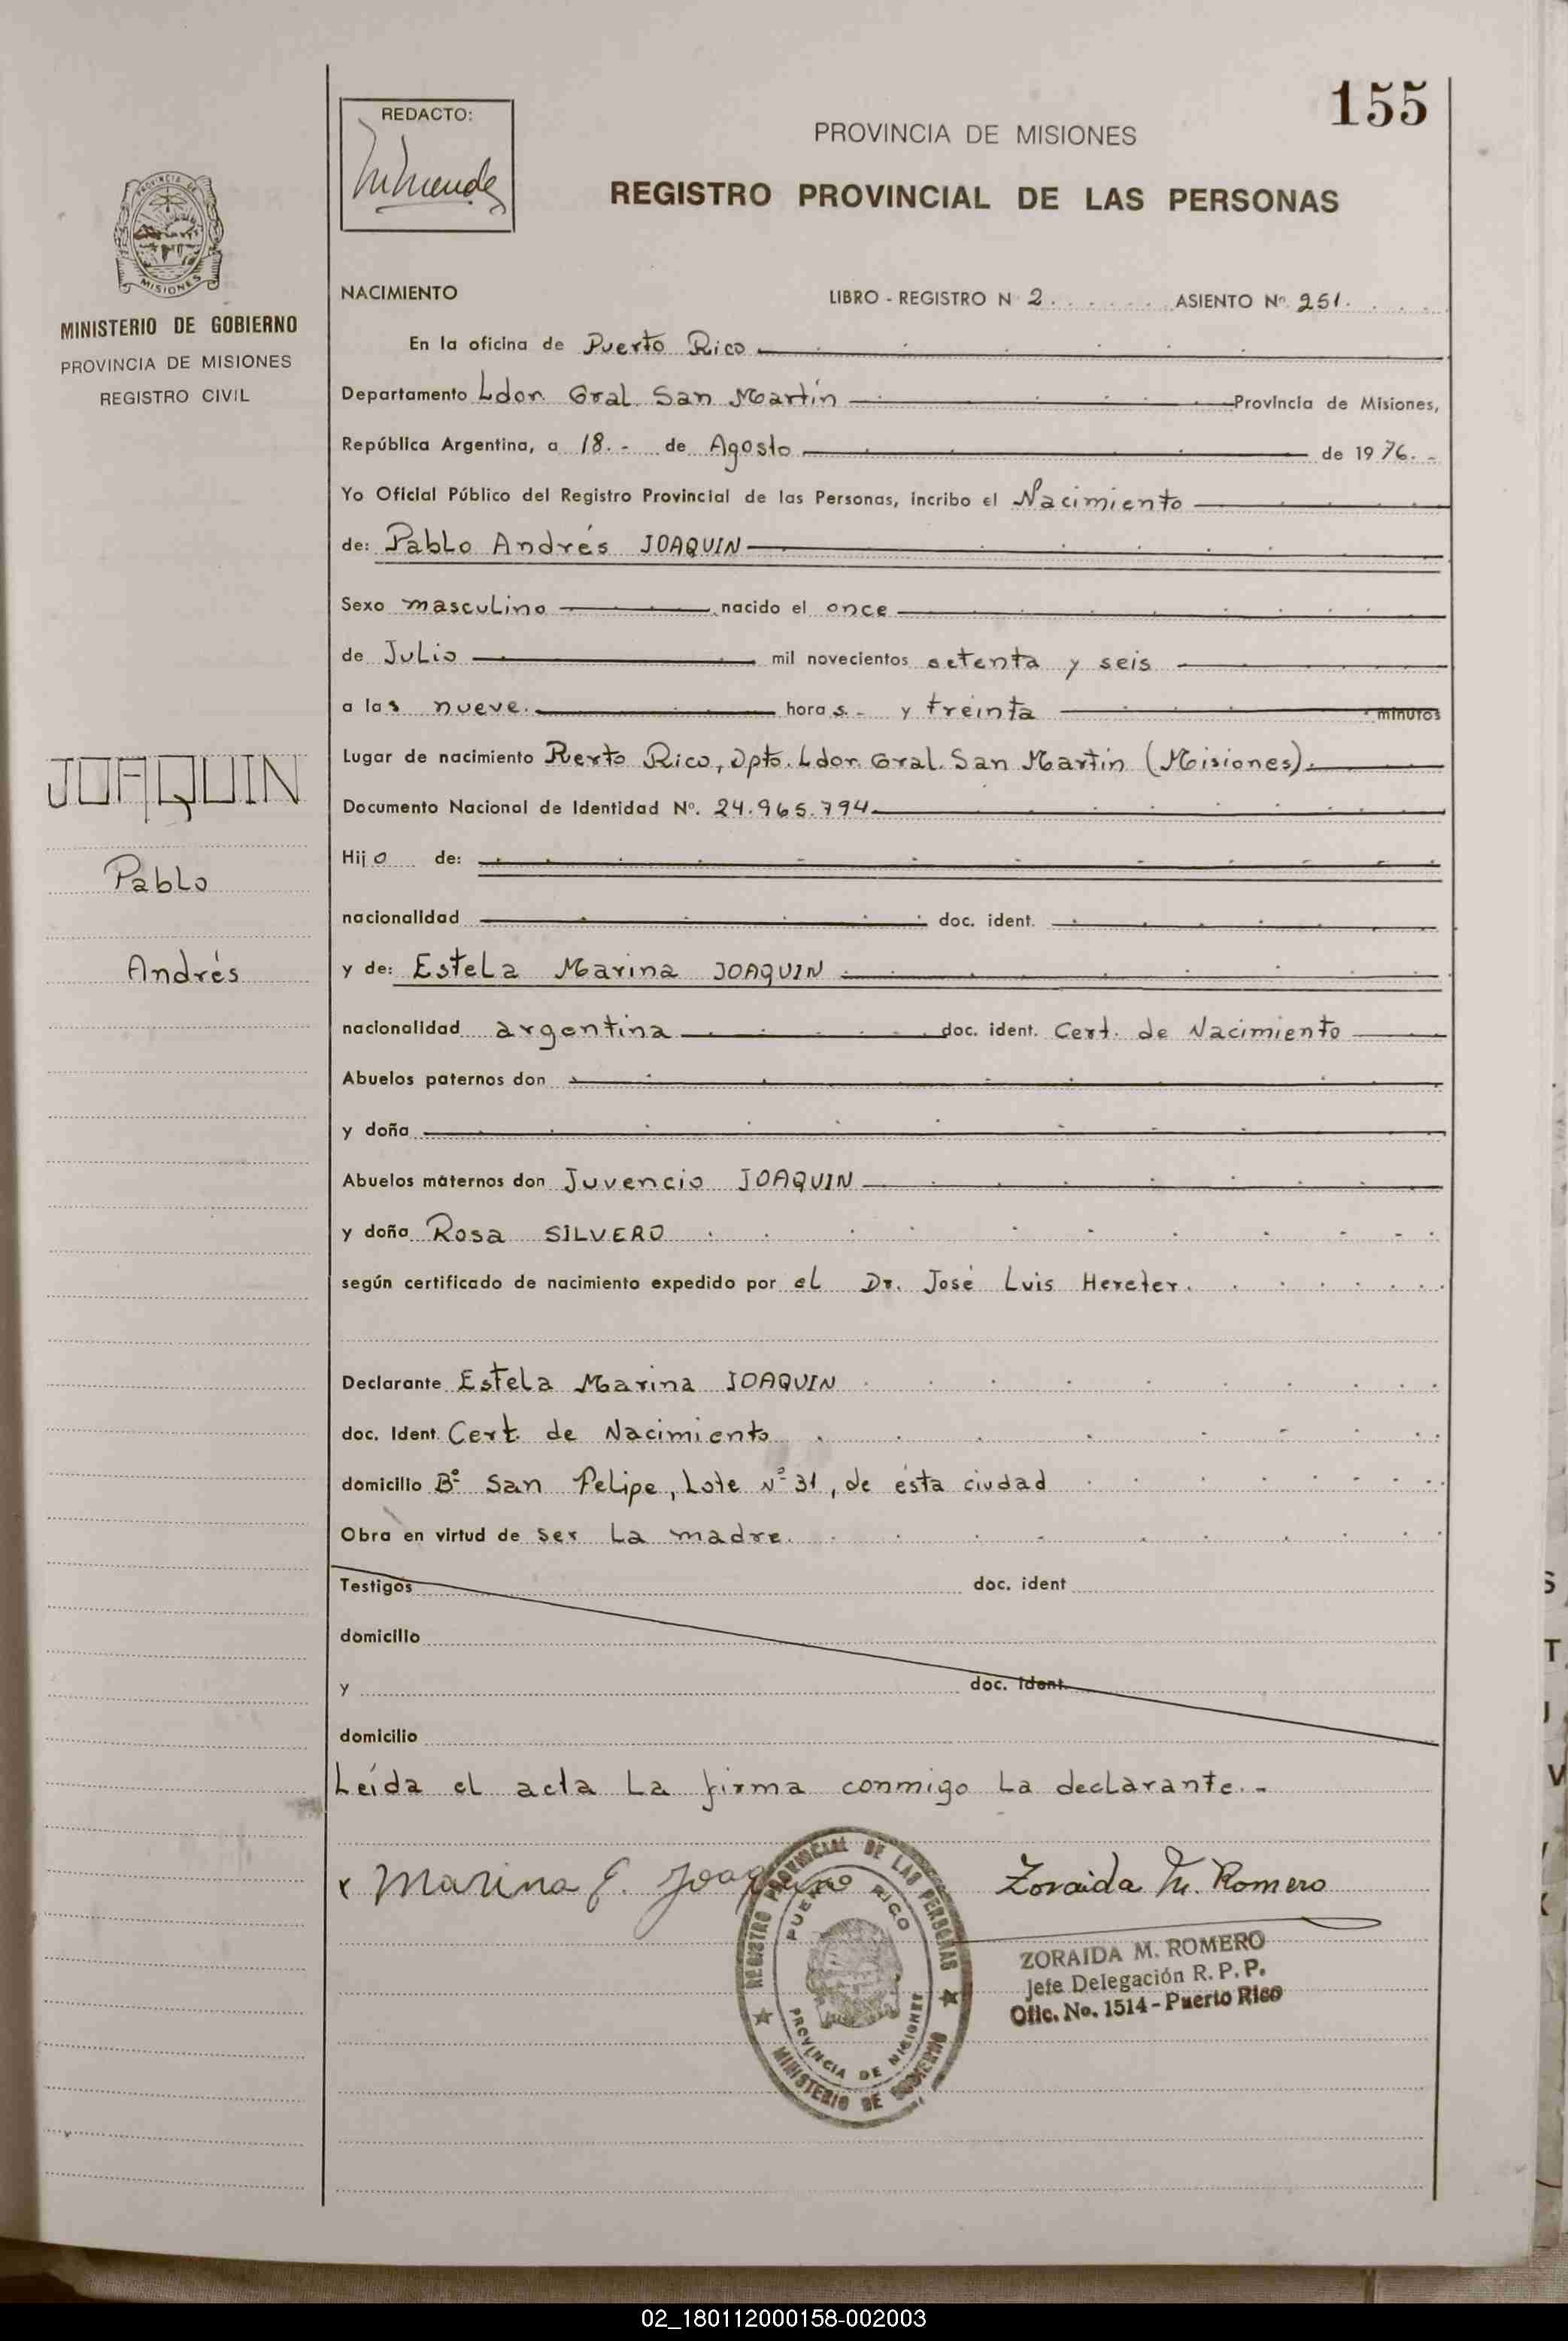 155
REDACTO:
PROVINCIA DE MISIONES
REGISTRO PROVINCIAL DE LAS PERSONAS
PROVINCIA DE
MISIONES
MINISTERIO DE GOBIERNO
PROVINCIA DE MISIONES
REGISTRO CIVIL
JOAQUIN
Pablo
Andrés
NACIMIENTO LIBRO - REGISTRO N 2. ASIENTO Nº 251.
En la oficina de Puerto Rico
Departamento Ldor. Gral. San Martín Provincia de Misiones,
República Argentina, a 18.- de Agosto de 1976.-
Yo Oficial Público del Registro Provincial de las Personas, incribo el Nacimiento
de: Pablo Andrés JOAQUIN
Sexo masculino nacido el once
de Julio mil novecientos setenta y seis
a las nueve. horas.- y treinta minutos
Lugar de nacimiento Puerto Rico, Dpto. Ldor. Gral. San Martin (Misiones).
Documento Nacional de Identidad Nº. 24.965.794
Hijo de:
nacionalidad doc. ident.
y de: Estela Marina JOAQUIN
nacionalidad argentina doc. ident. Cert. de Nacimiento
Abuelos paternos don
y doña
Abuelos maternos don Juvencio JOAQUIN
y doña Rosa SILVERO
según certificado de nacimiento expedido por el Dr. José Luis Hereter.
Declarante Estela Marina JOAQUIN
doc. Ident. Cert. de Nacimiento
domicilio Bº San Felipe, Lote Nº 31, de ésta ciudad
Obra en virtud de ser La madre.
Testigos doc. ident
domicilio
y doc. ident.
domicilio
Leída el acta La firma conmigo La declarante.-
x Marina E. Joaquino Zoraida M. Romero
REGISTRO PROVINCIAL DE LAS PERSONAS
MINISTERIO DE GOBIERNO
PUERTO RICO
PROVINCIA DE MISIONES
ZORAIDA M. ROMERO
Jefe Delegación R.P.P.
Ofic. No. 1514 - Puerto Rico
S
T
J
V
02_180112000158-002003